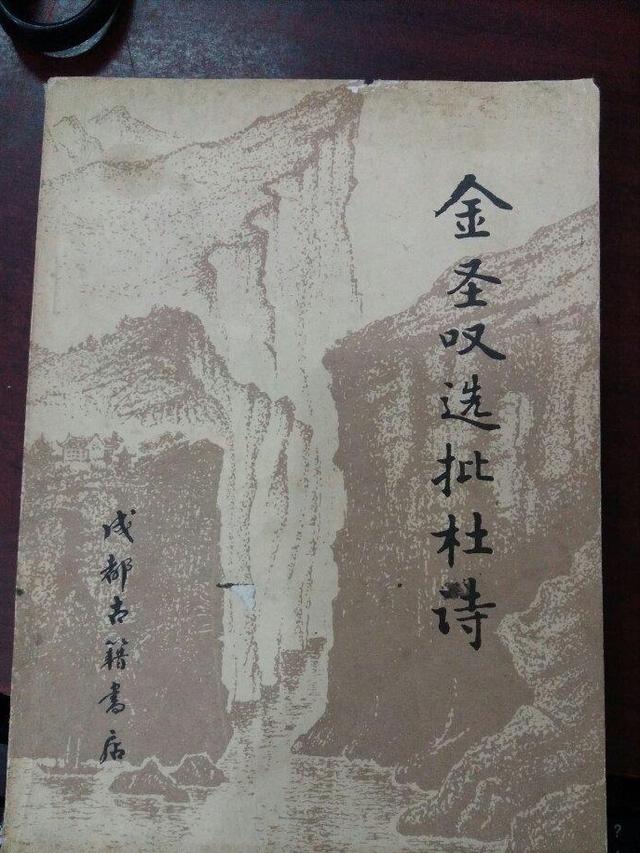 金圣叹选批杜诗
成都古籍書店